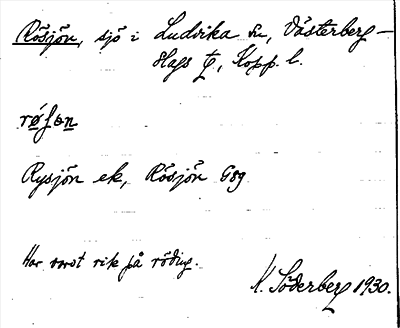 Rösjön, sjö i Ludvika sn, Västerberg-
slags tg, Kopp. l.
røʃən
Rysjön ek, Rösjön G89
Har varit rik på röding.
N. Söderberg 1930.